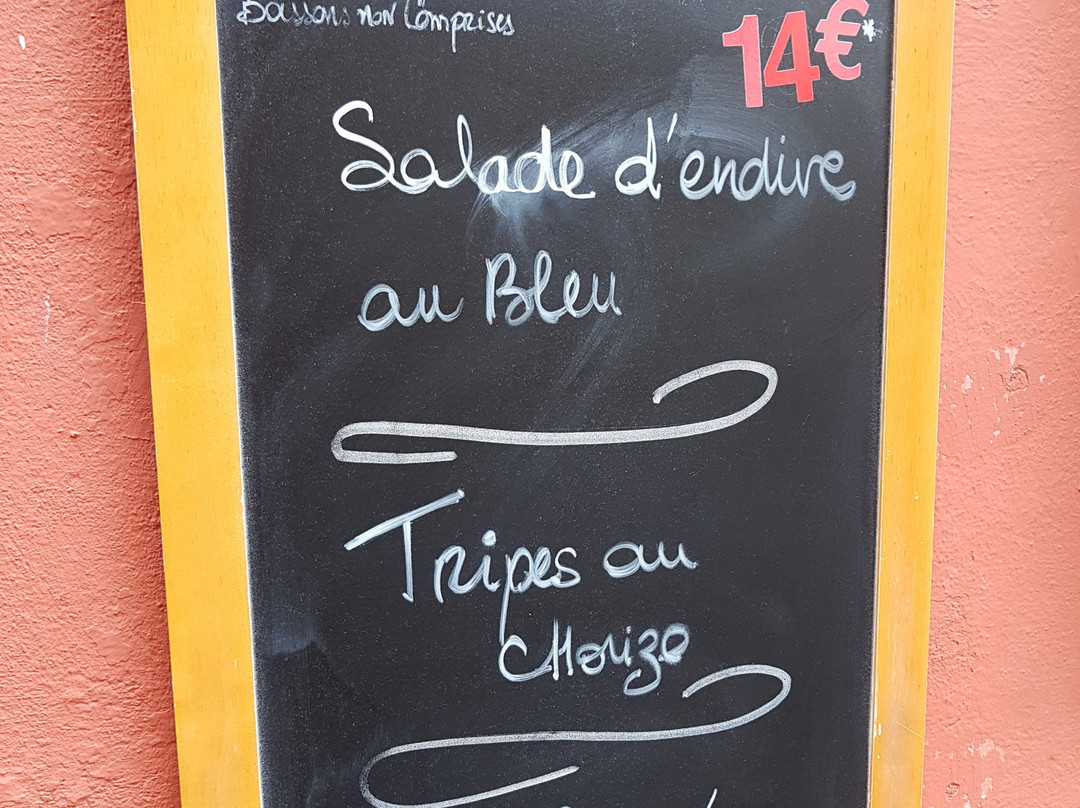 Boissons non Comprises
14€*
Salade d'endive
au Bleu
Tripes au
CHorizo